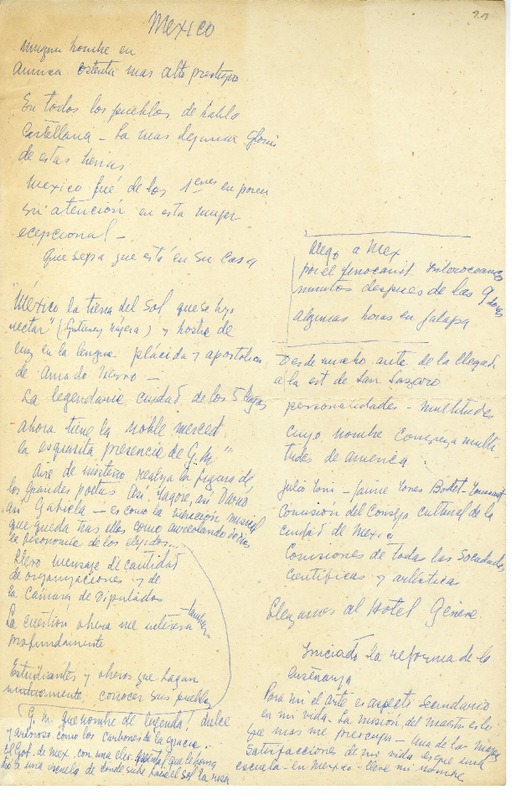 Mexico
Ningun hombre en
America ostenta mas alto prestigio
En todos los pueblos de habla
Castellana - La mas legitima gloria
de estas tierras
Mexico fué de los 1eros en poner
su atención en esta mujer
ecepcional -
Que sepa que está en su casa
"México la tierra del Sol que se hizo
nectar (Gutierrez Nájera) y hostia de
luz en la lengua plácida y apostólica
de Amado Nervo -
La legendaria ciudad de los 5 lagos
- ahora tiene la noble merced
la esquisita presencia de G.M."
Aire de misterio realza la figura de
los grandes poetas Asi Tagore, asi Dario
asi Gabriela - es como la vibración musical
que queda tras ellos como aureolando
la fisonomia de los elejidos.
Llevo mensaje de cantidad
de organizaciones y de
la Cámara de Diputados
La cuestión obrera me interesa
profundamente
Estudiantes y obreros que hagan
conocer sus pueblos
G. M. que nombre de leyenda! dulce
y ardoroso como los carbones de la gracia.
El Gob. de Mex. con una
una escuela de donde sube hacia el Sol la rosa
Llego a Mex
por el ferrocarril Interoceanico
minutos despues de las 9 horas
algunas horas en Jalapa
Desde mucho antes de la llegada
a la est de San Lazaro
personalidades - multitudes
cuyo nombre congrega multi-
tudes de America
Julio - Jaime Torres Bodet -
Comision del Consejo cultural de la
ciudad de Mexico
Comisiones de todas las Sociedades
cientificas y artistica
Llegamos al Hotel Genova
Iniciada la reforma de la
enseñanza
Para mi el arte es aspecto secundario
en mi vida. La misión del maestro es lo
que mas me preocupa - Una de las mayores
satisfacciones de mi vida es que una
escuela en Mexico - lleve mi nombre